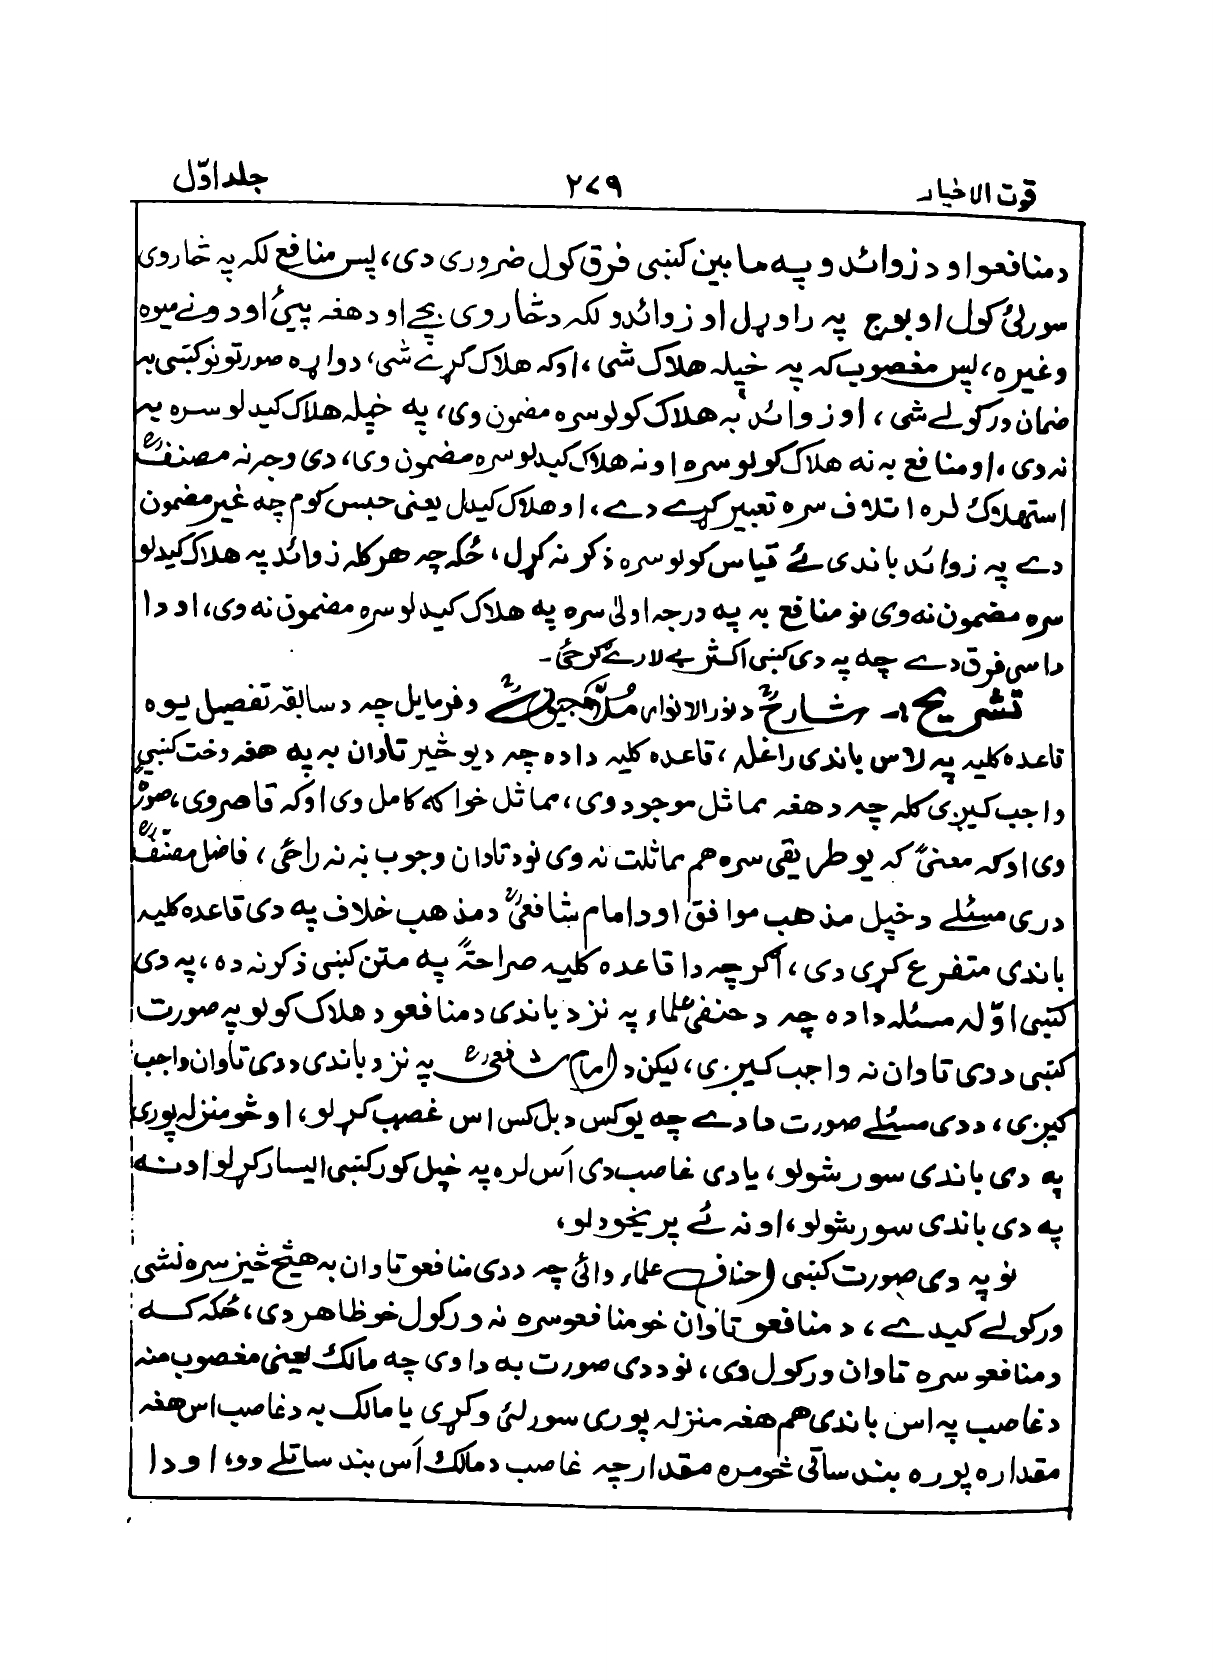 قوت الاخیار ۲۷۹ جلد اوّل
د منافعو او د زوائد و په ما بین کښی فرق کول ضروری دی، پس منافع لکه په څاروی
سورلئ کول او بوج په راوړل او زوائد و لکه د څاروی بچے او د هغه پیئ او د ونے میوه
وغیره، پس مغصوب که په خپله هلاک شی، اوکه هلاک کړے شی، دواړه صورتونو کښی به
ضمان ورکولے شی، او زوائد به هلاک کولو سره مضمون وی، په خپله هلاک کیدلو سره به
نه دی، او منافع به نه هلاک کولو سره او نه هلاک کیدلو سره مضمون وی، دی وجه نه مصنفؒ
استهلاک لره اتلاف سره تعبیر کړے دے، او هلاک کیدل یعنی حبس کوم چه غیر مضمون
دے په زوائد باندی ئے قیاس کولو سره ذکر نه کړل، ځکه چه هر کله زوائد په هلاک کیدلو
سره مضمون نه وی نو منافع به په درجه اولیٰ سره په هلاک کیدلو سره مضمون نه وی، او دا
داسی فرق دے چه په دی کښی اکثر بے لارے کرځی۔
تشریح :- شارحؒ د نور الانوار ملّا جیونؒ وفرمایل چه د سابقه تفصیل یوه
قاعده کلیه په لاس باندی راغله، قاعده کلیه داده چه دیو څیز تاوان به په هغه وخت کښی
واجب کیږی کله چه د هغه مماثل موجود وی، مماثل خواکه کامل وی اوکه قاصر وی، صورةً
وی اوکه معنیً که یو طریقی سره هم مماثلت نه وی نو د تاوان وجوب به نه راځی، فاضل مصنّفؒ
دری مسئلے د خپل مذهب موافق او د امام شافعیؒ د مذهب خلاف په دی قاعده کلیه
باندی متفرع کړی دی، اگرچه دا قاعده کلیه صراحةً په متن کښی ذکر نه ده، په دی
کښی اوّله مسئله داده چه د حنفی علماء په نزد باندی د منافعو د هلاک کولو په صورت
کښی د دی تاوان نه واجب کیږی، لیکن د امام شافعیؒ په نزد باندی د دی تاوان واجب
کیږی، د دی مسئلے صورت دا دے چه یو کس د بل کس اس غصب کړلو، او څو منزله پوری
په دی باندی سور شولو، یا دی غاصب دی اَس لره په خپل کور کښی ایسار کړلو او نه
په دی باندی سور شولو، او نه ئے پریخودلو،
نو په دی صورت کښی احناف علماء وائی چه د دی منافعو تاوان به هیڅ څیز سره نشی
ورکولے کیدے، د منافعو تاوان خو منافعو سره نه ورکول خو ظاهر دی، ځکه که
د منافعو سره تاوان ورکول وی، نو د دی صورت به دا وی چه مالک یعنی مغصوب منه
د غاصب په اس باندی هم هغه منزله پوری سورلئ وکړی یا مالک به د غاصب اس هغه
مقداره پوره بند ساتی څومره مقدار چه غاصب د مالک اَس بند ساتلے وو، او دا